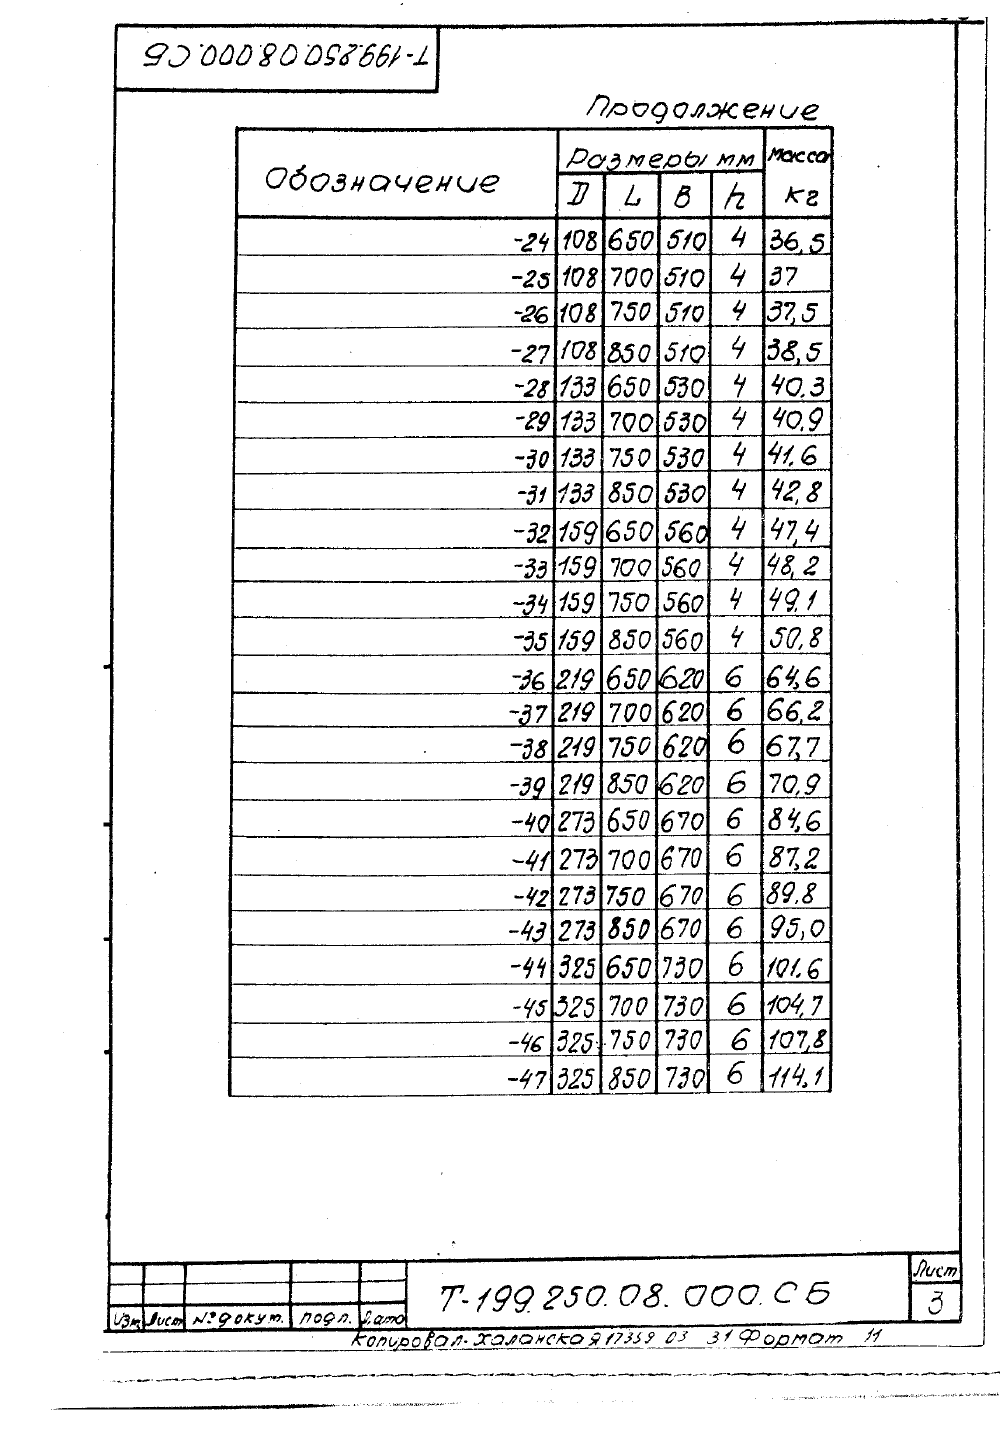 Т-199.250.08.000.СБ
Продолжение
Обозначение Размеры мм Масса кг
D L В h
-24 108 650 510 4 36,5
-25 108 700 510 4 37
-26 108 750 510 4 37,5
-27 108 850 510 4 38,5
-28 133 650 530 4 40.3
-29 133 700 530 4 40,9
-30 133 750 530 4 41.6
-31 133 850 530 4 42,8
-32 159 650 560 4 47,4
-33 159 700 560 4 48,2
-34 159 750 560 4 49.1
-35 159 850 560 4 50,8
-36 219 650 620 6 64,6
-37 219 700 620 6 66,2
-38 219 750 620 6 67,7
-39 219 850 620 6 70,9
-40 273 650 670 6 84,6
-41 273 700 670 6 87,2
-42 273 750 670 6 89.8
-43 273 850 670 6 95,0
-44 325 650 730 6 101.6
-45 325 700 730 6 104,7
-46 325 750 730 6 107,8
-47 325 850 730 6 114.1
Изм Лист № докум. подп. Дата
Т-199.250.08.000.СБ
Лист
3
Копировал- Халанская 17359 03 31 Формат 11